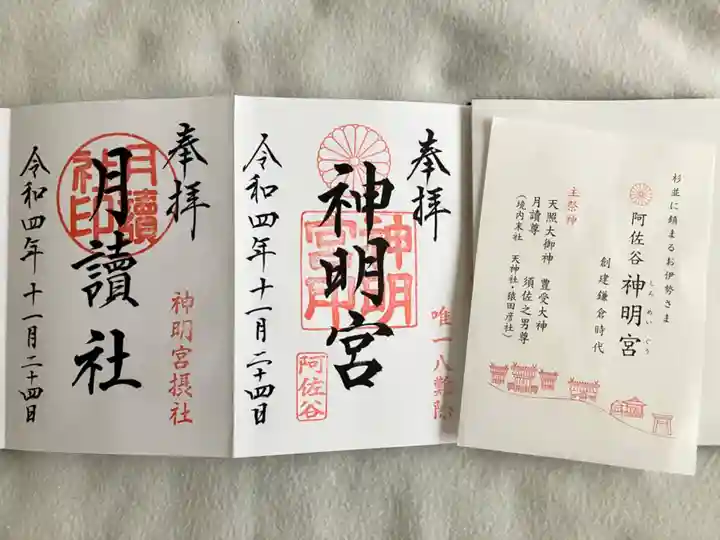 杉並に鎮まるお伊勢さま
阿佐谷 神明宮
しんめいぐう
創建鎌倉時代
主祭神
天照大御神 豊受大神
月讀尊 須佐之男尊
(境内末社 天神社・猿田彦社)
奉拝
唯一八難除
神明宮
神明宮印
阿佐谷
令和四年十一月二十四日
奉拝
神明宮摂社
月讀社
月讀社印
令和四年十一月二十四日